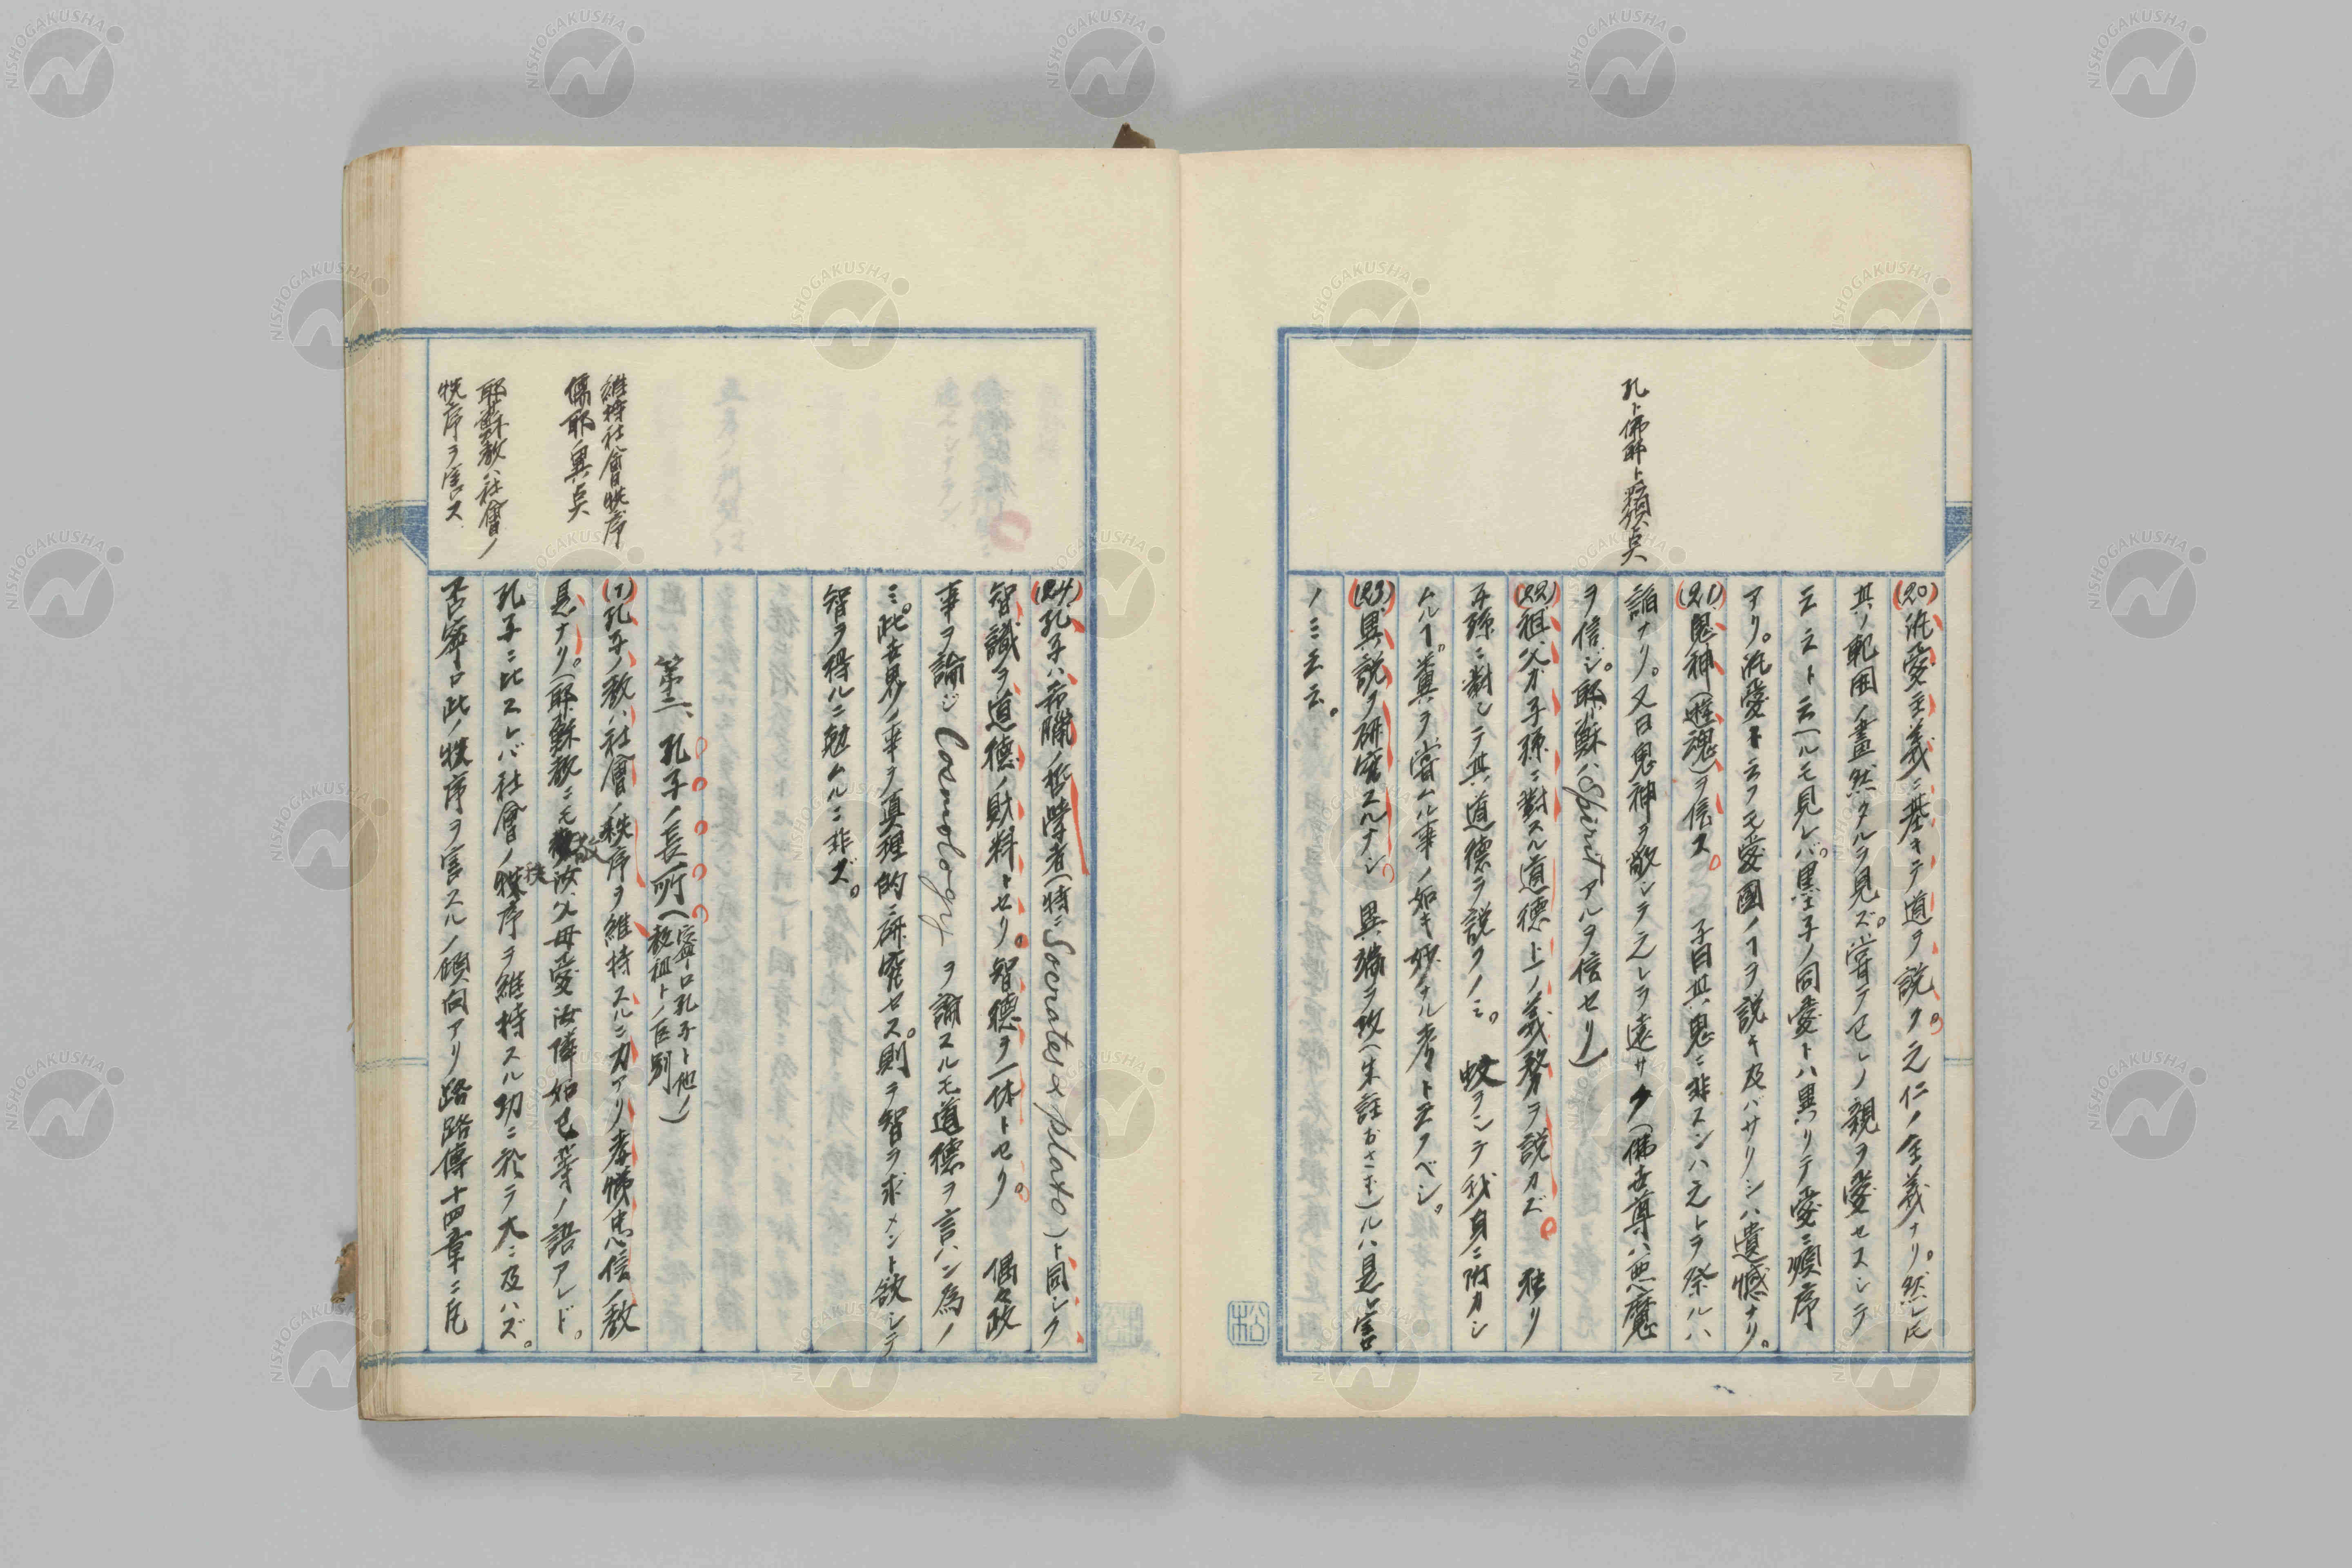 孔ト佛耶ト類点
(20)汎愛主義ニ基キテ道ヲ説ク。之仁ノ全義ナリ。然レ𪜈
其ノ範囲ノ畫然タルヲ見ズ。嘗テ已レノ親ヲ愛セスシテ
云々ト云ヘルモ見レバ。墨子ノ同愛トハ異リテ愛ニ順序
アリ。汎愛ト云フモ愛國ノヿヲ説キ及バサリシハ遺憾ナリ。
(21)鬼神(遊魂)ヲ信ス。子曰其鬼ニ非スンハ之レヲ祭ルハ
諂ナリ。又曰鬼神ヲ敬シテ之レヲ遠サク(佛世尊ハ悪魔
ヲ信ジ。耶蘇ハSpiritアルヲ信セリ)
(22)祖父ガ子孫ニ對スル道德上ノ義務ヲ説カズ。独リ
子孫ニ對シテ其道德ヲ説クノミ。蚊ヲシテ我身ニ附カシ
ムルヿ。糞ヲ嘗ムル事ノ如キ妙ナル孝ト云フベシ。
(23)異説ヲ研究スルナシ。異端ヲ攻(朱註おさむ)ルハ是レ害
ノミ云云。
(24)孔子ハ希臘ノ哲學者(特ニSocrates & plato)ト同シク
智識ヲ道德ノ財料トセリ。智德ヲ一体トセリ。偶々政
事ヲ論ジCosmologyヲ講スルモ道德ヲ言ハン為ノ
ミ。此世界ノ事ヲ真理的ニ研究セス。則ヲ智ヲ求メント欲シテ
智ヲ得ルニ勉ムルニ非ズ。
第二、孔子ノ長所(寧ロ孔子ト他ノ
教祖トノ区別)
維持社會秩序
儒耶ノ異点
(1)孔子ノ教ハ社會ノ秩序ヲ維持スルニ力アリ孝悌忠信ノ教
是ナリ。(耶蘇教ニモ敬汝父母愛汝隣如己等ノ語アレド。
耶蘇教ハ社會ノ
秩序ヲ害ス
孔子ニ比スレバ社會ノ秩序ヲ維持スル功ニ於テ大ニ及ハズ。
否寧ロ此ノ秩序ヲ害スルノ傾向アリ路路傳十四章ニ凡
松
NISHOGAKUSHA